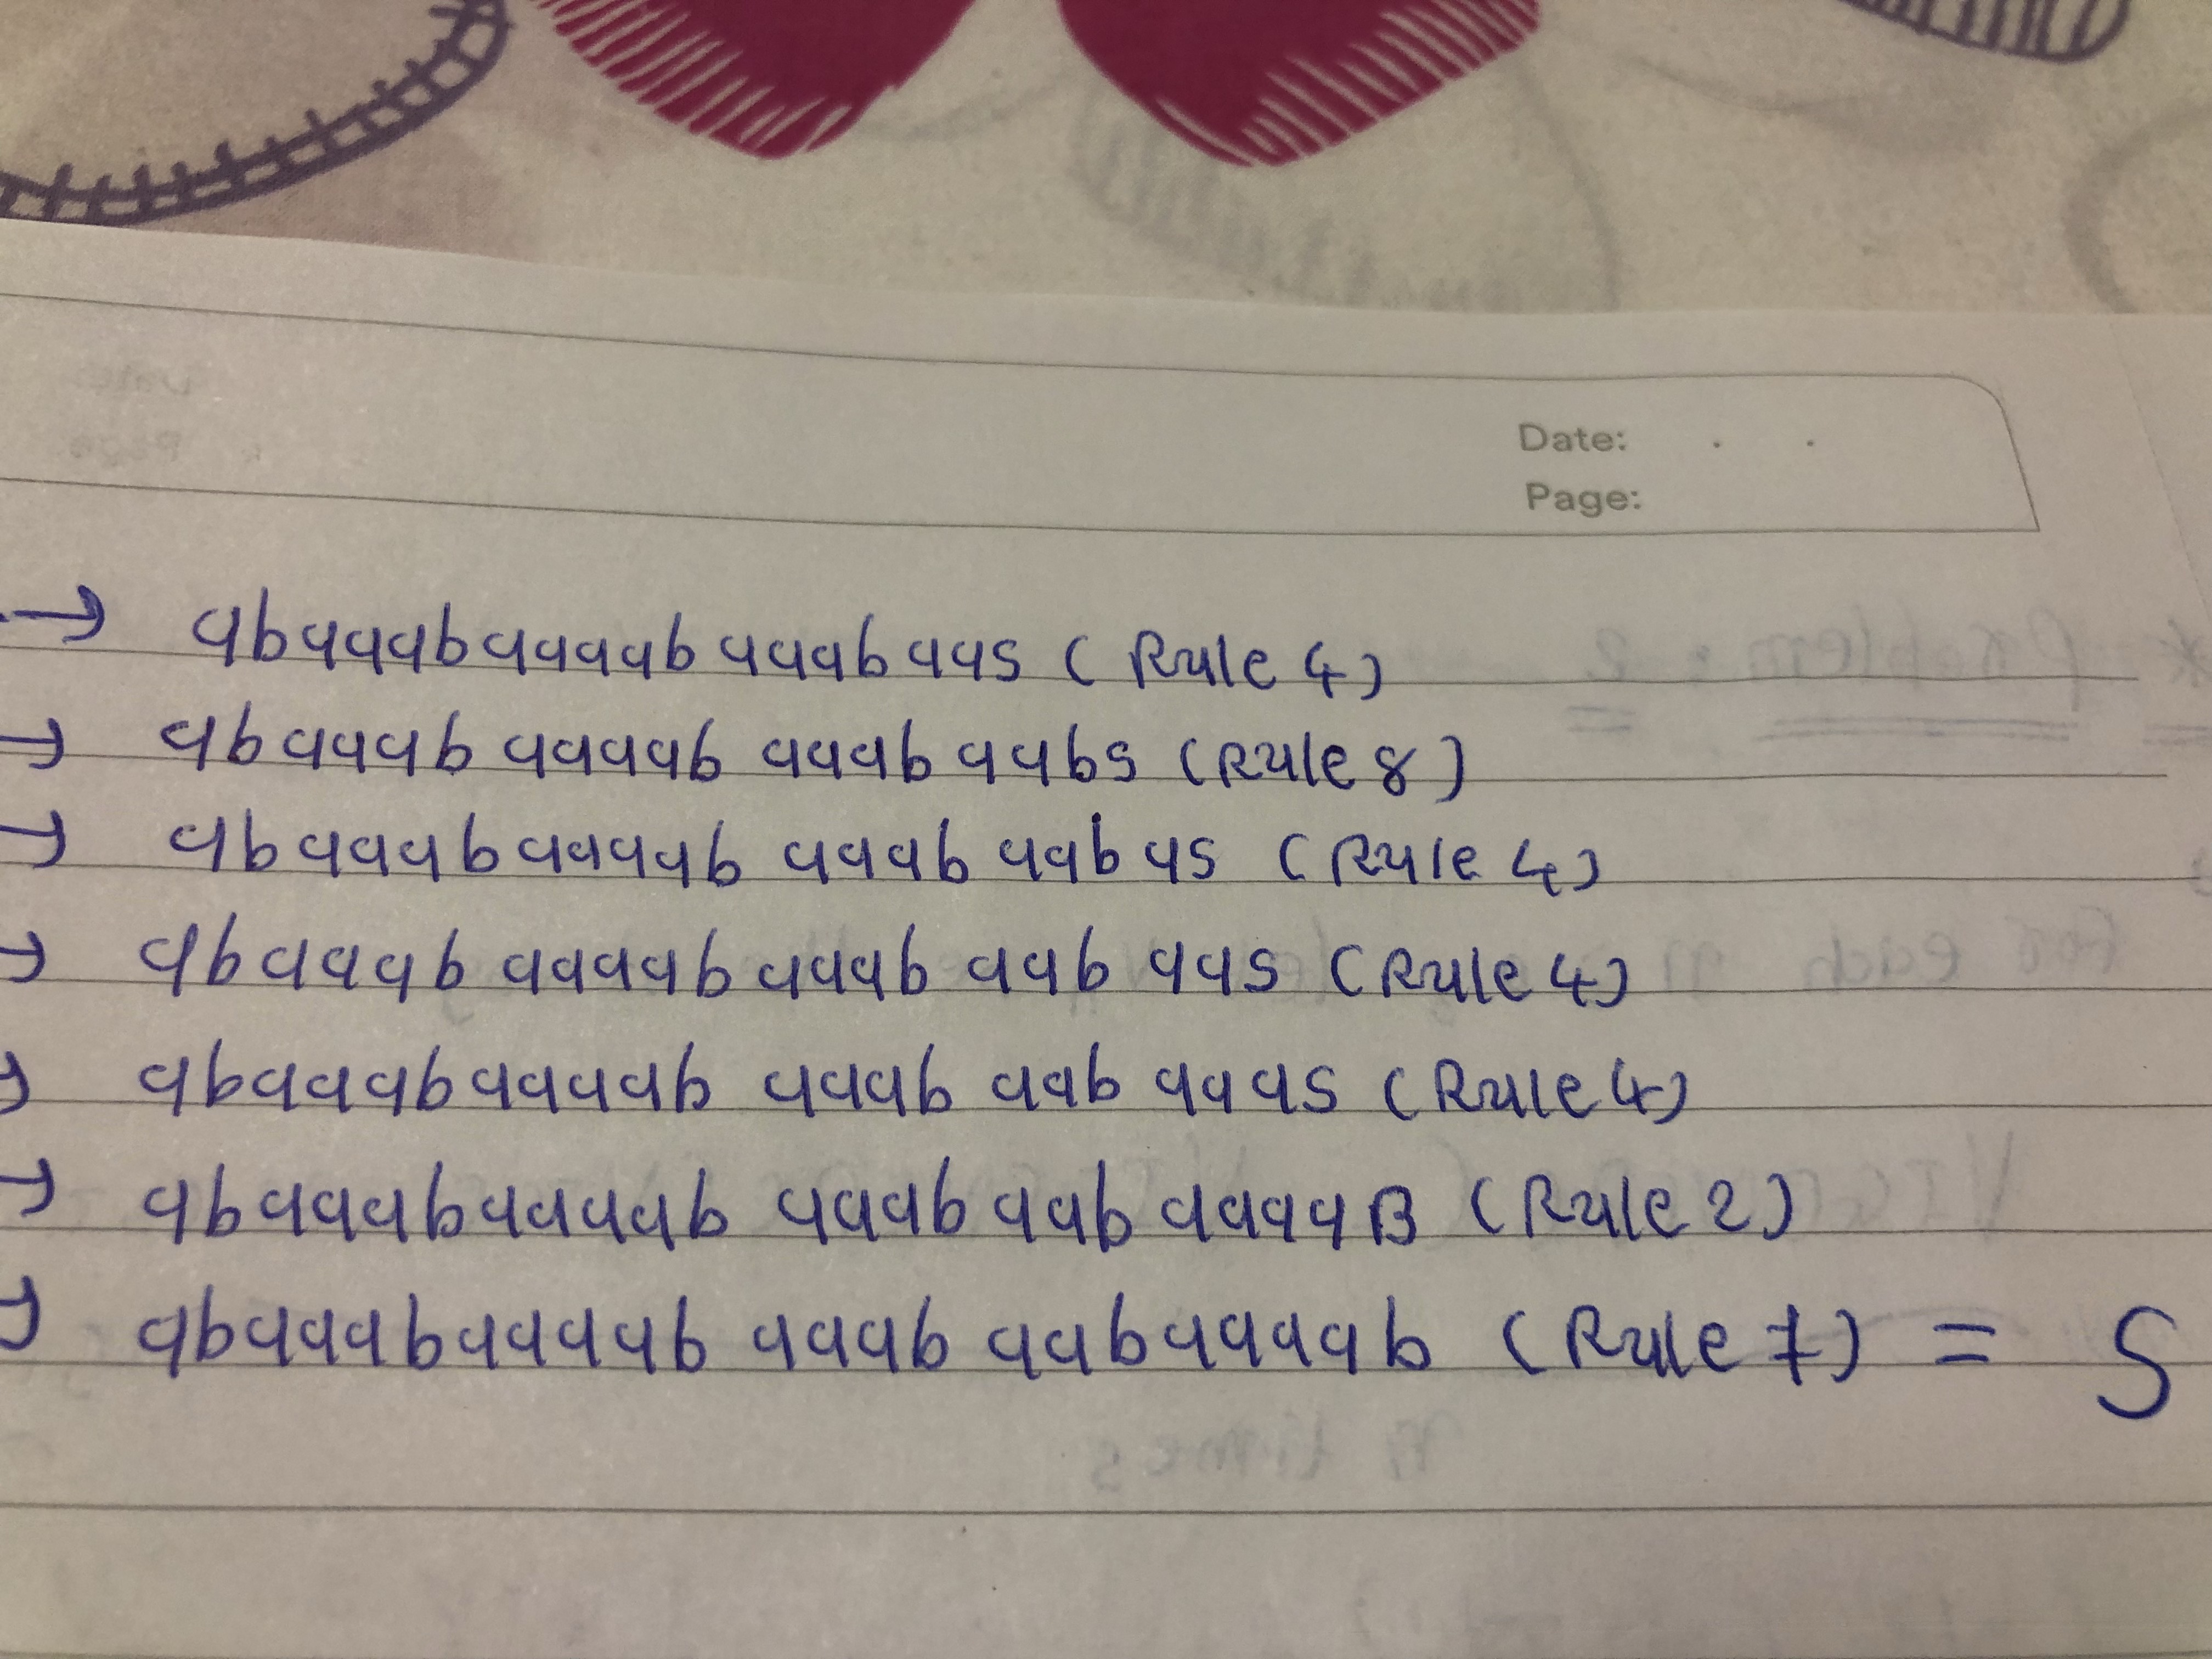 Date:
Page:
→ abaaabaaaab aaab aas (rule 4)
→ abaaab aaaab aaab aabs (rule 8)
→ abaaabaaaab aaab aab as (rule 4)
→ abaaab aaaabaaab aab aas (rule 4)
→ abaaabaaaab aaab aab aaas (rule 4)
→ abaaabaaaab aaab aab aaaaB (rule 2)
→ abaaabaaaab aaab aabaaaab (rule 7) = S